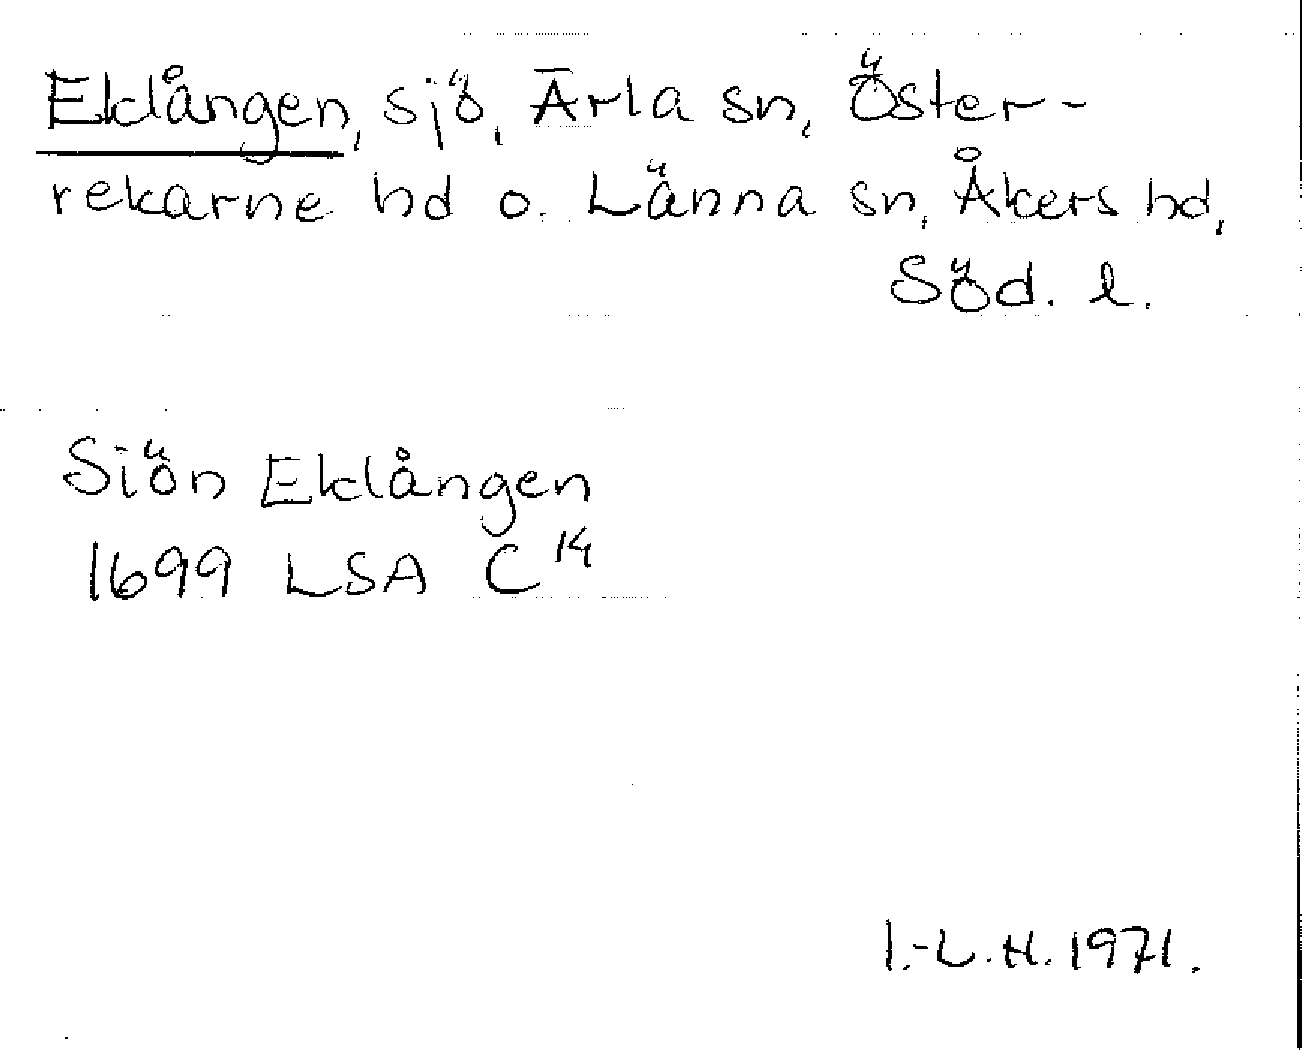 Eklången, sjö, Ärla sn, Öster-
rekarne hd o. Länna sn, Åkers hd,
Söd. l.
Siön Eklången
1699 LSA C 14
I.-L. H. 1971.